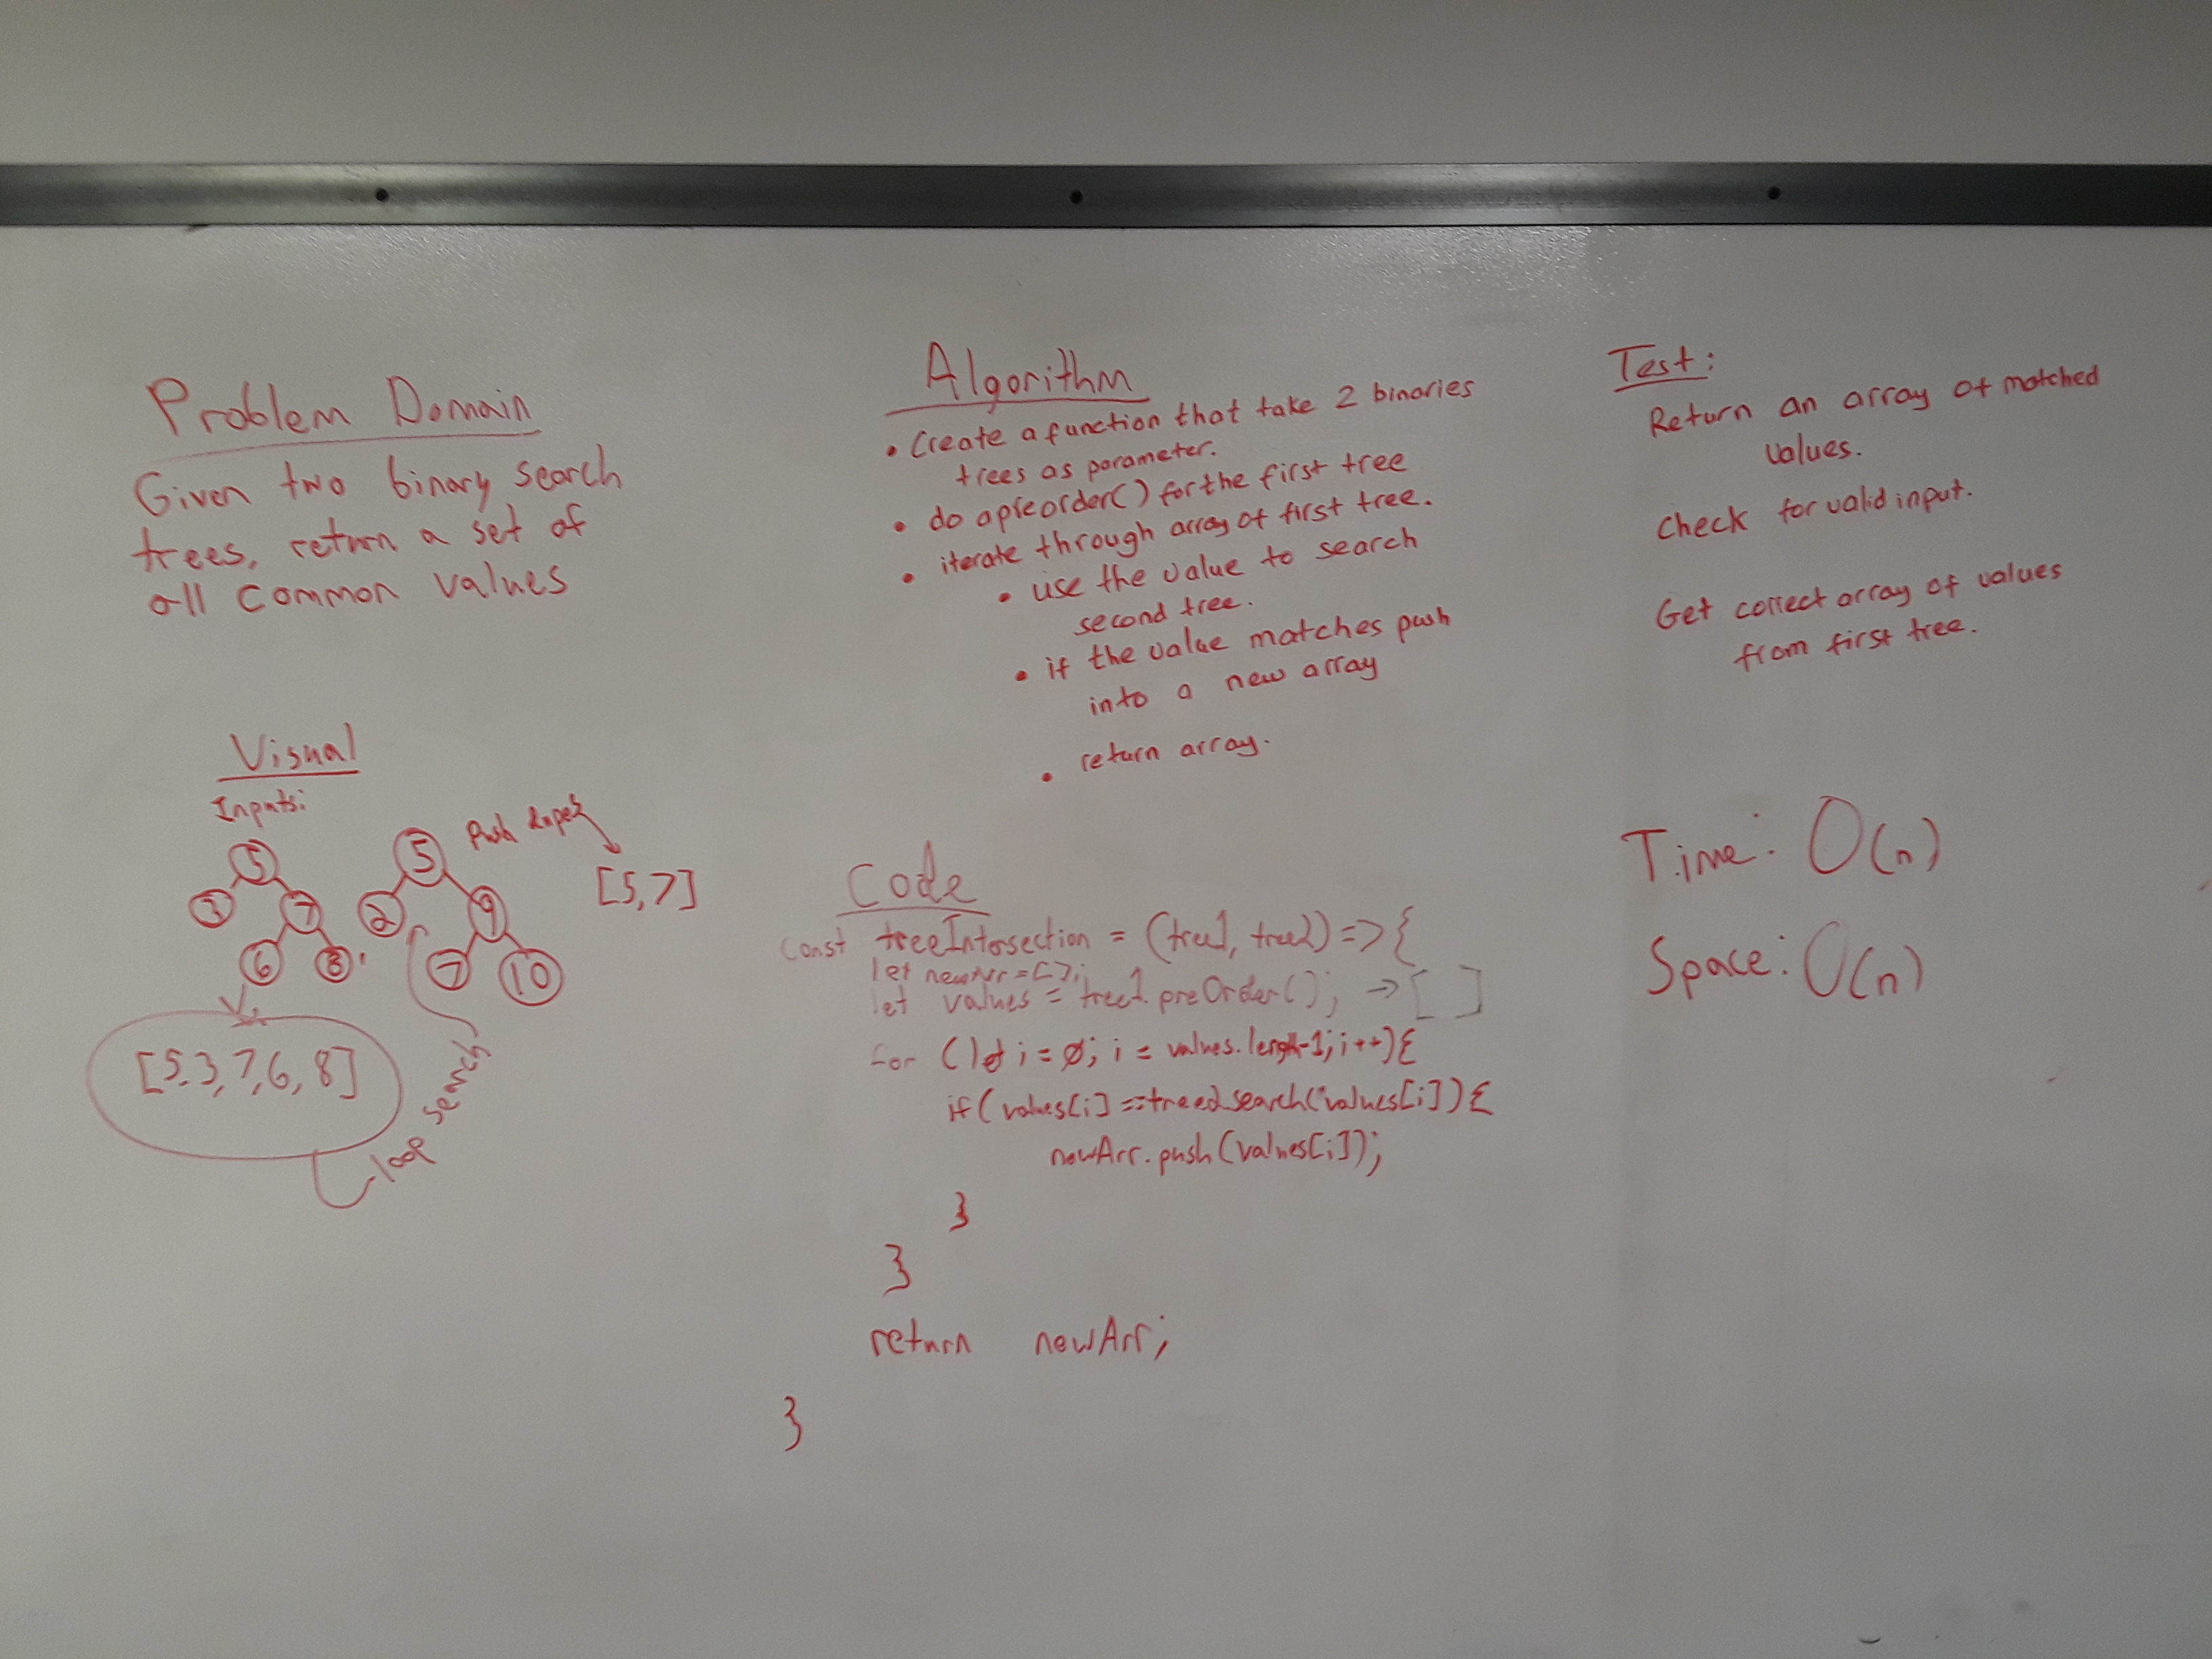 Problem Domain
Given two binary search
trees, return a set of
all common values
Visual
Inputs:
5
3
7
6
8
5
2
9
7
10
Push
[5,7]
[5,3,7,6,8]
loop search
Algorithm
• Create a function that take 2 binaries
trees as parameter.
• do a preorder() for the first tree
• iterate through array of first tree.
• use the value to search
second tree.
• if the value matches push
into a new array
• return array.
Code
const treeIntersection = (tree1, tree2) => {
let newArr = [];
let values = tree1.preOrder(); → [ ]
for (let i = 0; i = values.length-1; i++){
if(values[i] == tree2.search(values[i]){
newArr.push(values[i]);
}
}
return newArr;
}
Test:
Return an array of matched
values.
check for valid input.
Get correct array of values
from first tree.
Time: O(n)
Space: O(n)